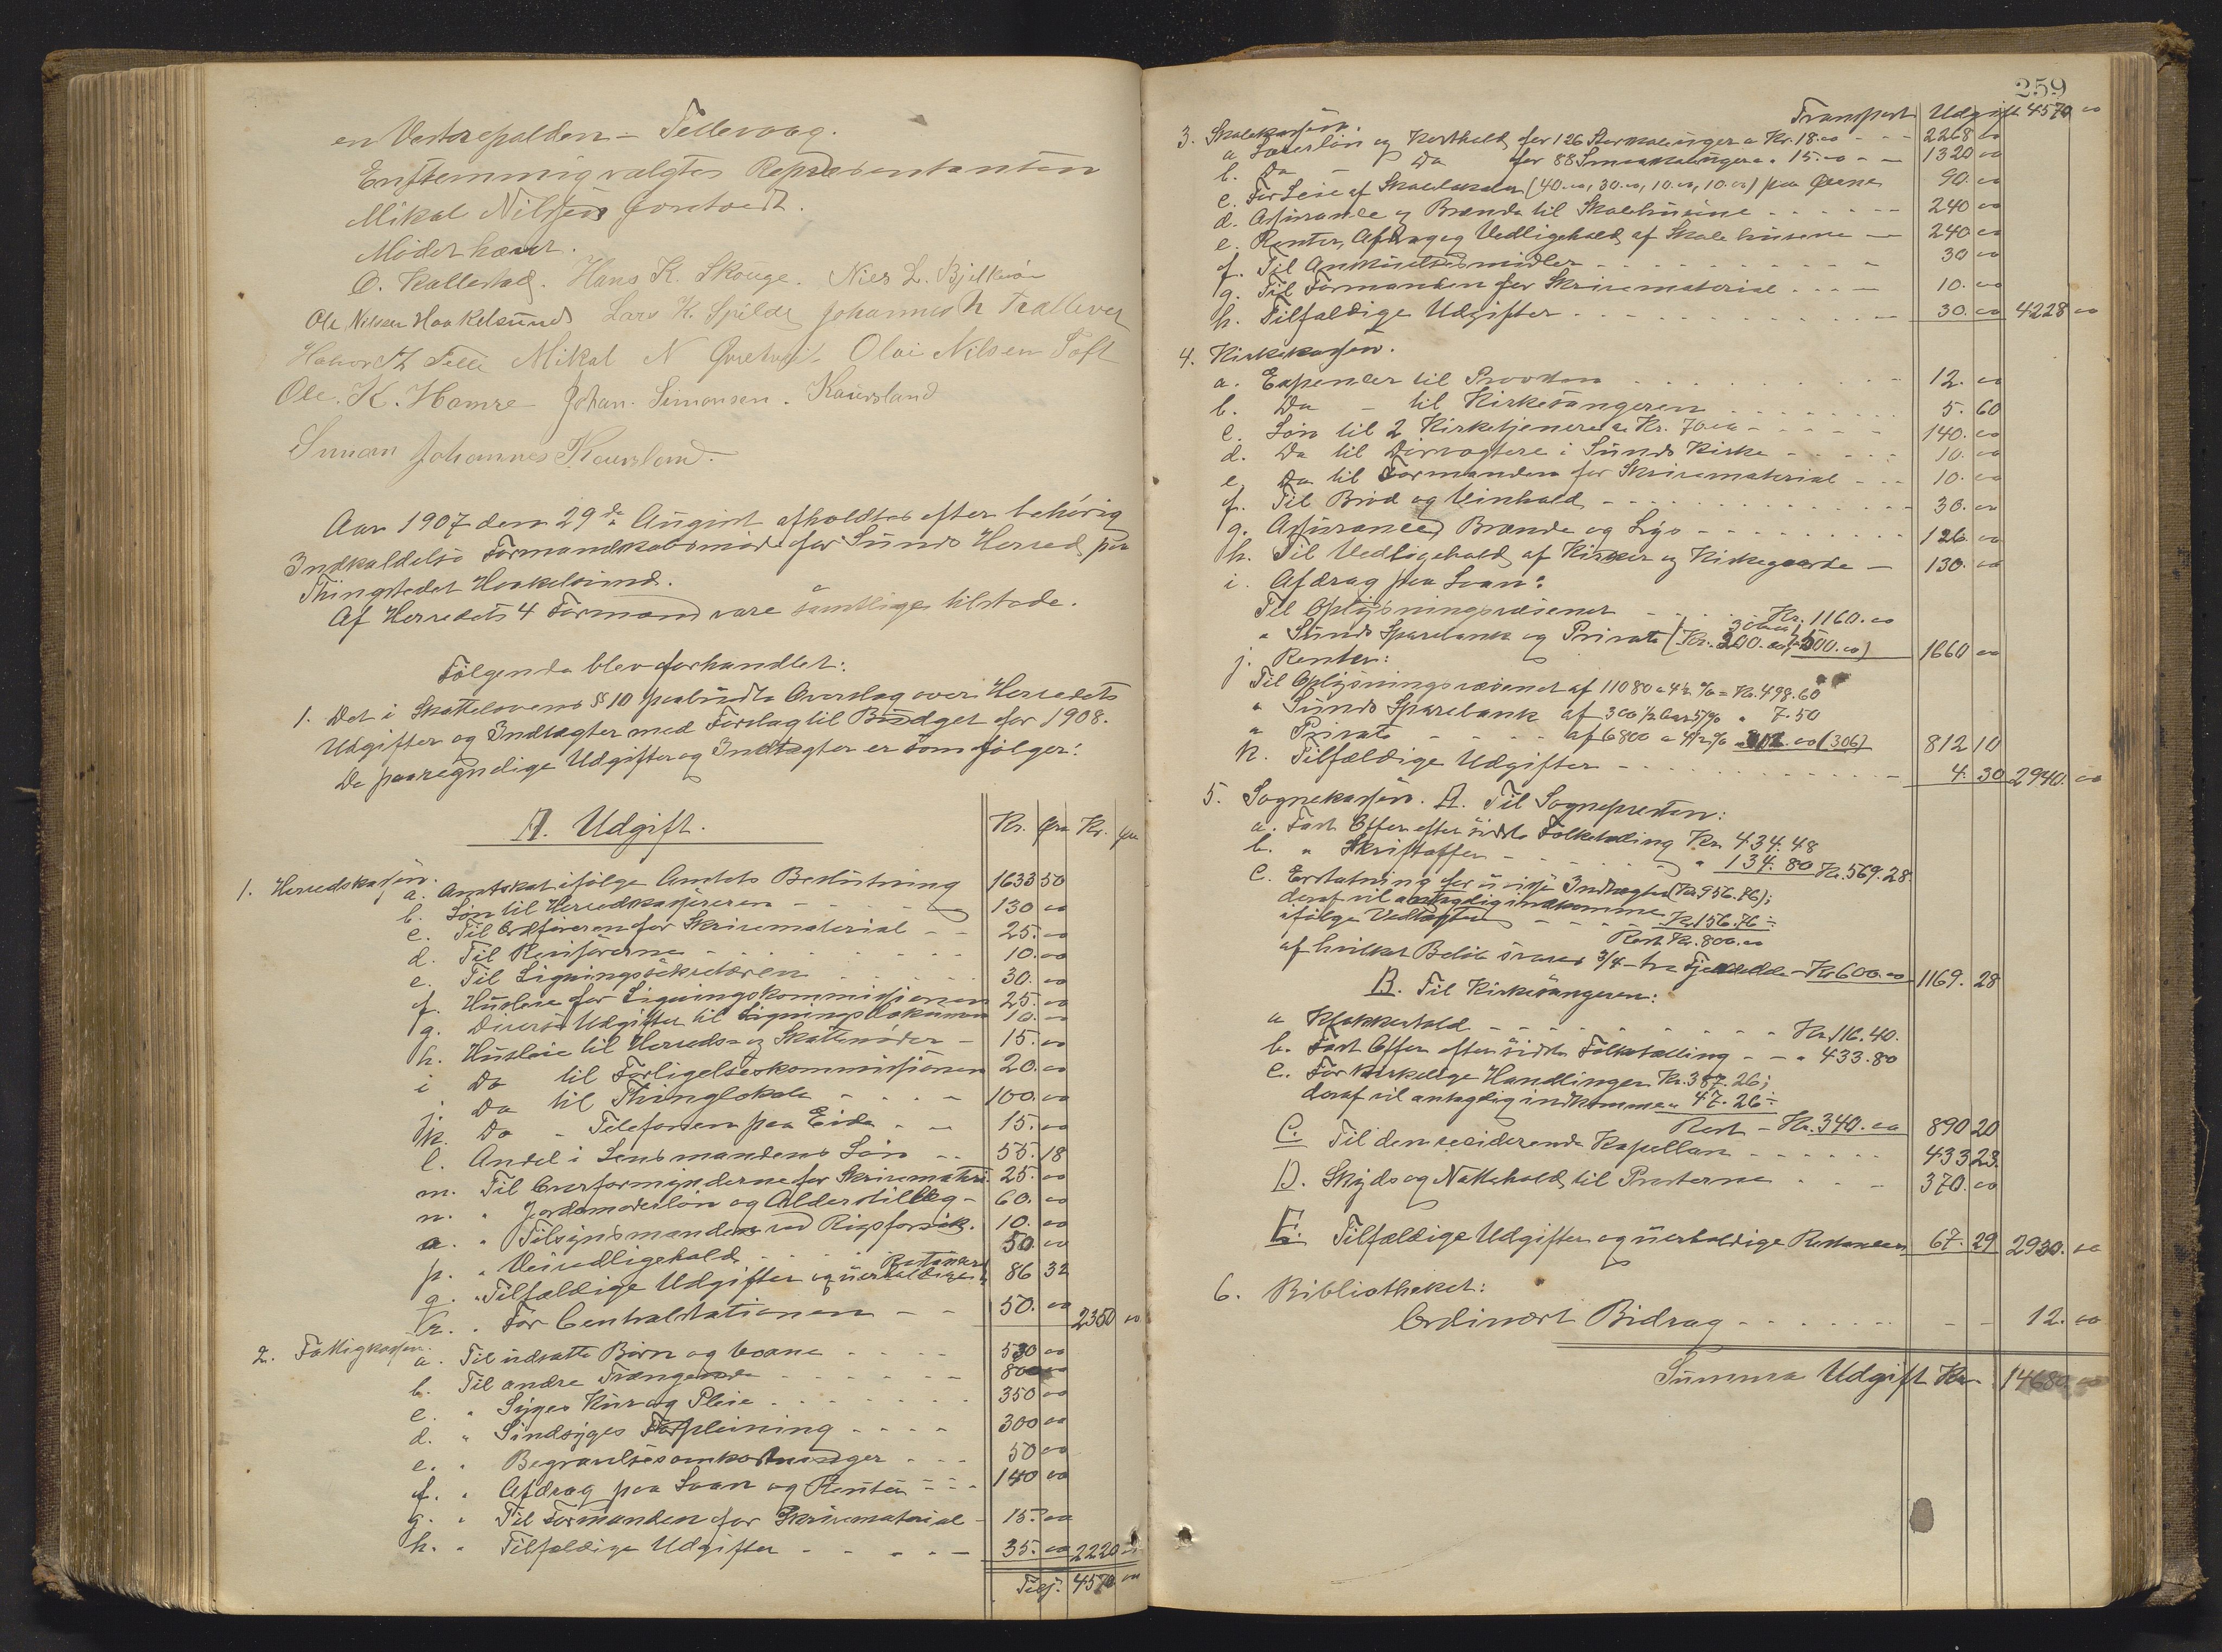 en Vestrepolden - Tellevaag.
Enstemmig valgtes Repræsentanten
Mikal Nilssen Goretvedt.
Mødet hævet.
O. Kallestad. Hans K. Skouge. Niels L. Bjelkerøe
Ole Nilssen Haakelsund Lars K. Spilde Johannes H Trallevig
Halvor H Telle Mikal N Goretvedt Olai Nilsen Toft
Ole. K. Hamre Johan. Simonsen. Kausland
Simon Johannes Kausland.
Aar 1907 den 29de August afholdtes efter behørig
Indkaldelse Formandskabsmøde for Sunds Herred paa
Thingstedet Haakelsund.
Af Herredets 4 Formænd vare samtlige tilstede.
Følgende blev forhandlet:
1. Det i Skattelovens § 10 paabudte Overslag over Herredets
Udgifter og Indtægter med Forslag til Budget for 1908.
De paaregnelige Udgifter og Indtægter er som følger:
A. Udgift. Kr. Øre Kr. Øre
1. Herredskassen.
a. Amtskat ifølge Amtets Beslutning 1633 50
b. Løn til Herredskassereren - - 130 00
c. Til Ordføreren for Skrivematerial - - 25. 00
d. Til Revisorerne - - 10. 00
e. Til Ligningssekretæren 30. 00
f. Husleie for Ligningskommissionen 25. 00
g. Diverse Udgifter til Ligningsvæsenet 10. -
h. Husleie til Herreds- og Skattemøder - 15. 00
i Do til Forligelseskommissionen 20. 00
j. Do til Thinglokale - - - 100. 00
k. Do - Telefonen paa Eide - - 15. 00
l. Andel i Lensmandens Løn - - 55. 18
m. Til Overformynderne for Skrivemateri. 25. 00
n. " Jordemoderløn og Alderstillæg - 60. 00
o. " Tilsynsmanden ved Rigsforsik. 10. 00
p. " Veivedligehold - - - 50. 00
q. " Tilfældige Udgifter og uerholdelige Restancer 86 32
r. " For Centralstationen - - 50. 00 2350 00
2. Fattigkassen.
a. Til udsatte Børn og Voxne - - - 530 00
b. Til andre Trængende - - - 800 00
c. " Syges Kur og Pleie - - - 350 00
d. " Sindsyges Forpleining - - - - 300 00
e. " Begravelsesomkostninger - - - 50 00
f. " Afdrag paa Laan og Renter - - - 140 00
g. " Til Formanden for Skrivematerial - 15. 00
h. " Tilfældige Udgifter - - - - 35. 00 2220 00
Tilsj. 4570 00
259
Transport Udgift 4570 00
3. Skolekassen.
a Lærerløn og Kosthold for 126 Storskoleuger a Kr. 18.00 - - - 2268 00
b. Do - Do for 88 Smaaskoleuger a " 15.00 - - 1320 00
c. For Leie af Skolelokaler (40.00, 30.00, 10.00, 10.00) paa Øerne 90. 00
d. Assurance og Brænde til Skolehusene - - - - 240 00
e. Renter, Afdrag og Vedligehold af Skolehusene - 240 00
f. Til Anskuelsesmidler - - - - 30 00
g. Til Formanden for Skrivematerial - - - 10. 00
h. Tilfældige Udgifter - - - 30. 00 4228 00
4. Kirkekassen.
a. Expenser til Provsten 12. 00
b. Do - til Kirkesangeren 5. 60
c. Løn til 2 Kirketjenere a Kr. 70.00 - - - - 140. 00
d. Do til Dørvogtere i Sunds Kirke - - - 10. 00
e. Do til Formanden for Skrivematerial - - - 10. 00
f. Til Brød og Vinhold - - - - 30. 00
g. Assurance, Brænde og Lys - - - 126. 00
h. Til Vedligehold af Kirker og Kirkegaarde - 130. 00
i. Afdrag paa Laan:
Til Oplysningsvæsenet - - - - Kr. 1160.00
" Sunds Sparebank og Private (Kr. 300.00, 200.00) 1660 00
j. Renter:
Til Oplysningsvæsenet af 11080 a 4½ % = Kr. 498.60
" Sunds Sparebank af 300 ½ Aar 5% " 7.50
" Private - - - af 6800 a 4½ % (306) 812 10
k. Tilfældige Udgifter - - - - 4. 30 2940. 00
5. Sognekassen. A. Til Sognepresten:
a. Fast Offer efter sidste Folketælling Kr. 434.48
b. " Skriftoffer - - - - " 134.80 Kr. 569.28.
c. Erstatning for uvisse Indtægter (Kr. 956.76);
deraf vil antagelig indkomme
ifølge Vedtægten - - - - Kr. 156.76 ÷
Rest Kr. 800.00
af hvilket Beløb svares 3/4 - tre Fjerdedele - Kr. 600.00 1169. 28
B. Til Kirkesangeren:
a Klokkertold - - - - Kr. 116.40.
b. Fast Offer efter sidste Folketælling - - " 433.80
c. For kirkelige Handlinger Kr. 387.26;
deraf vil antagelig indkomme " 47.26 ÷
Rest - Kr. 340.00 890 20
C. Til den residerende Kapellan - - - - - 433 23.
D. Skyds og Nattehold til Presterne - - - 370. 00
E. Tilfældige Udgifter og uerholdelige Restancer 67. 29 2930. 00
6. Bibliotheket:
Ordinært Bidrag - - - - - - 12. 00
Summa Udgift Kr. 14680 00